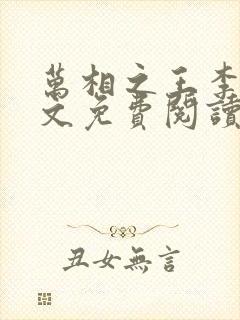 萬相之王李
文免費閱讀
丑女無言